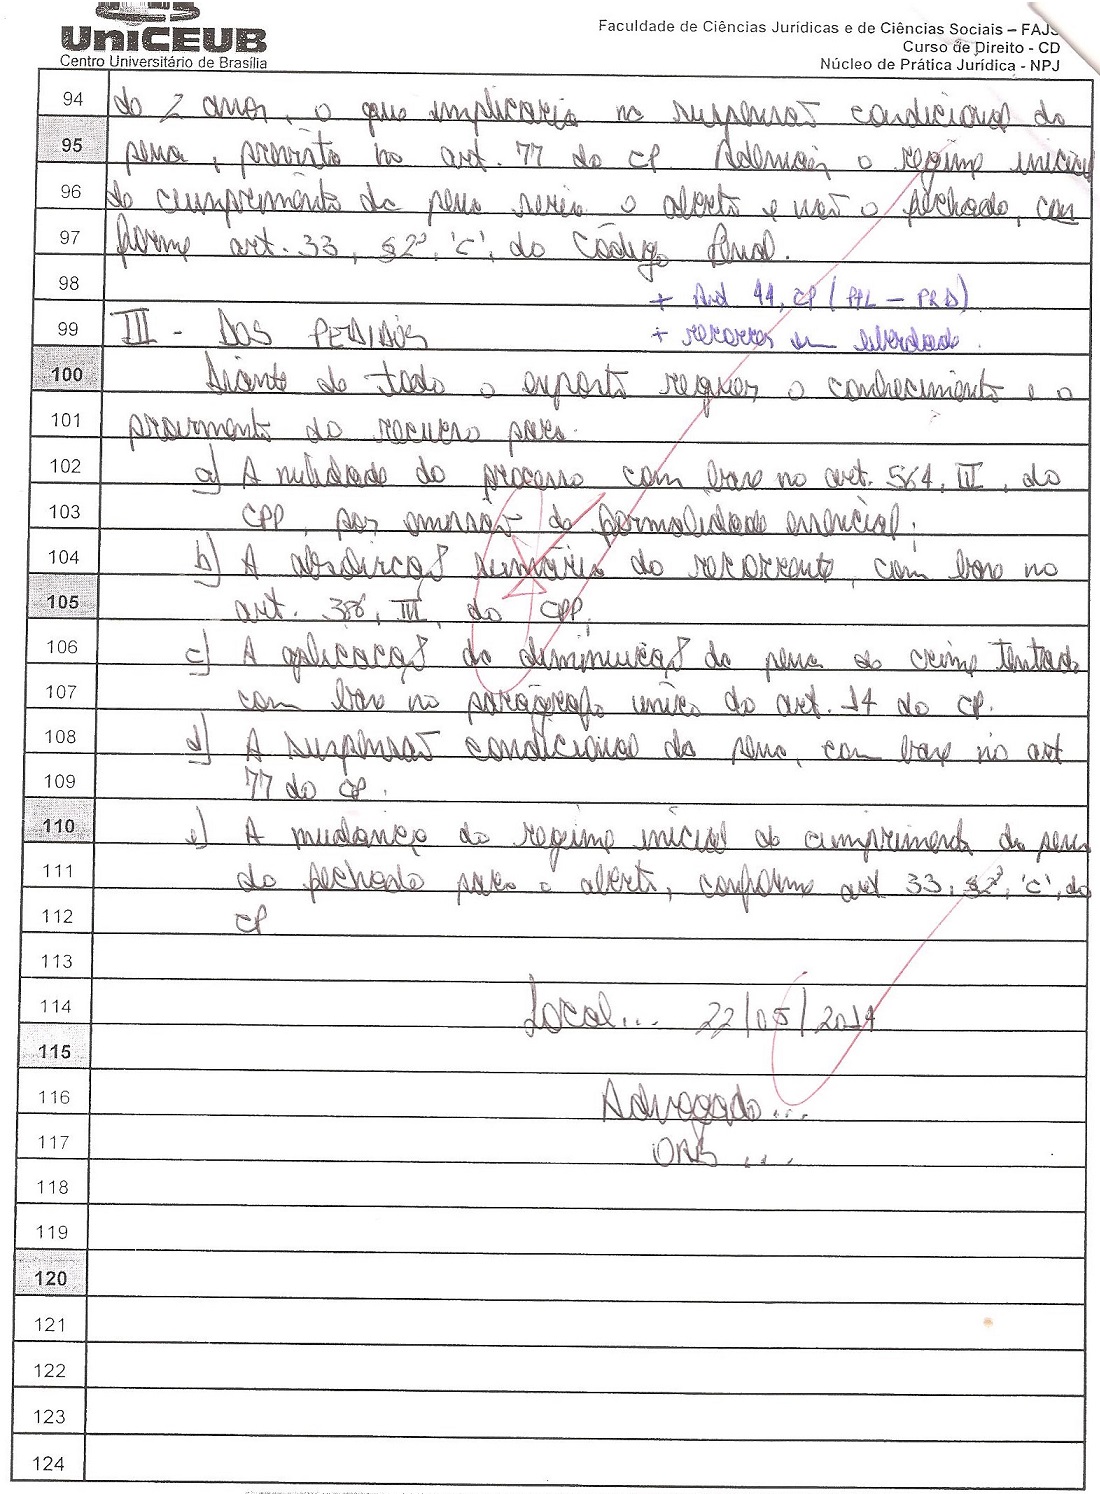 UniCEUB
Centro Universitário de Brasília
Faculdade de Ciências Jurídicas e de Ciências Sociais – FAJS
Curso de Direito - CD
Núcleo de Prática Jurídica - NPJ
94 de 2 anos, o que implicaria na suspensão condicional da
95 pena, previsto no art. 77 do CP Ademais, o regime inicial
96 de cumprimento da pena seria o aberto e não o fechado, con
97 forme art. 33, §2º, 'c', do Código Penal.
98 + Art 44, CP (PPL – PRD)
99 III - DOS PEDIDOS + recorrer em liberdade.
100 Diante de todo o exposto requer o conhecimento e o
101 provimento do recurso para:
102 a) A nulidade do processo com base no art. 564, III, do
103 CPP, por omissão de formalidade essencial;
104 b) A absolvição sumária do recorrente, com base no
105 art. 386, III, do CPP;
106 c) A aplicação da diminuição de pena do crime tentado
107 com base no parágrafo único do art. 14 do CP.
108 d) A suspensão condicional da pena, com base no art
109 77 do CP.
110 e) A mudança do regime inicial de cumprimento da pena
111 do fechado para o aberto, conforme art 33, §2º, 'c', do
112 CP
113
114 Local... 22/05/2014
115
116 Advogado...
117 OAB ...
118
119
120
121
122
123
124